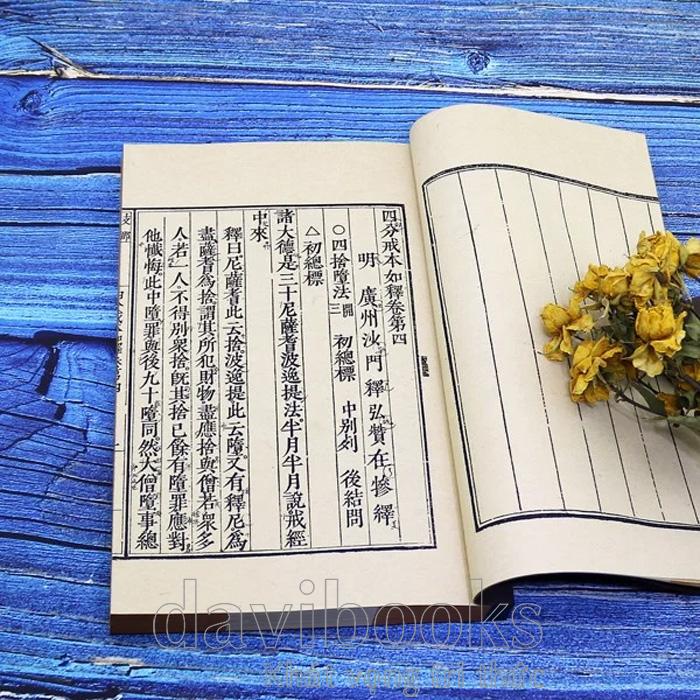 四分戒本如釋卷第四
明 廣州沙門釋弘贊在犙繹
○四捨墮法開三 初總標 中別列 後結問
△初總標
諸大德是三十尼薩耆波逸提法半月半月說戒經
中來
釋曰尼薩耆此云捨波逸提此云墮又有釋尼為
盡薩耆為捨謂其所犯財物盡應捨與僧若眾多
人若一人不得別眾捨既其捨已餘有墮罪應對
他懺悔此中墮罪與後九十墮同然大僧墮事總
davibooks
Khát vọng tri thức